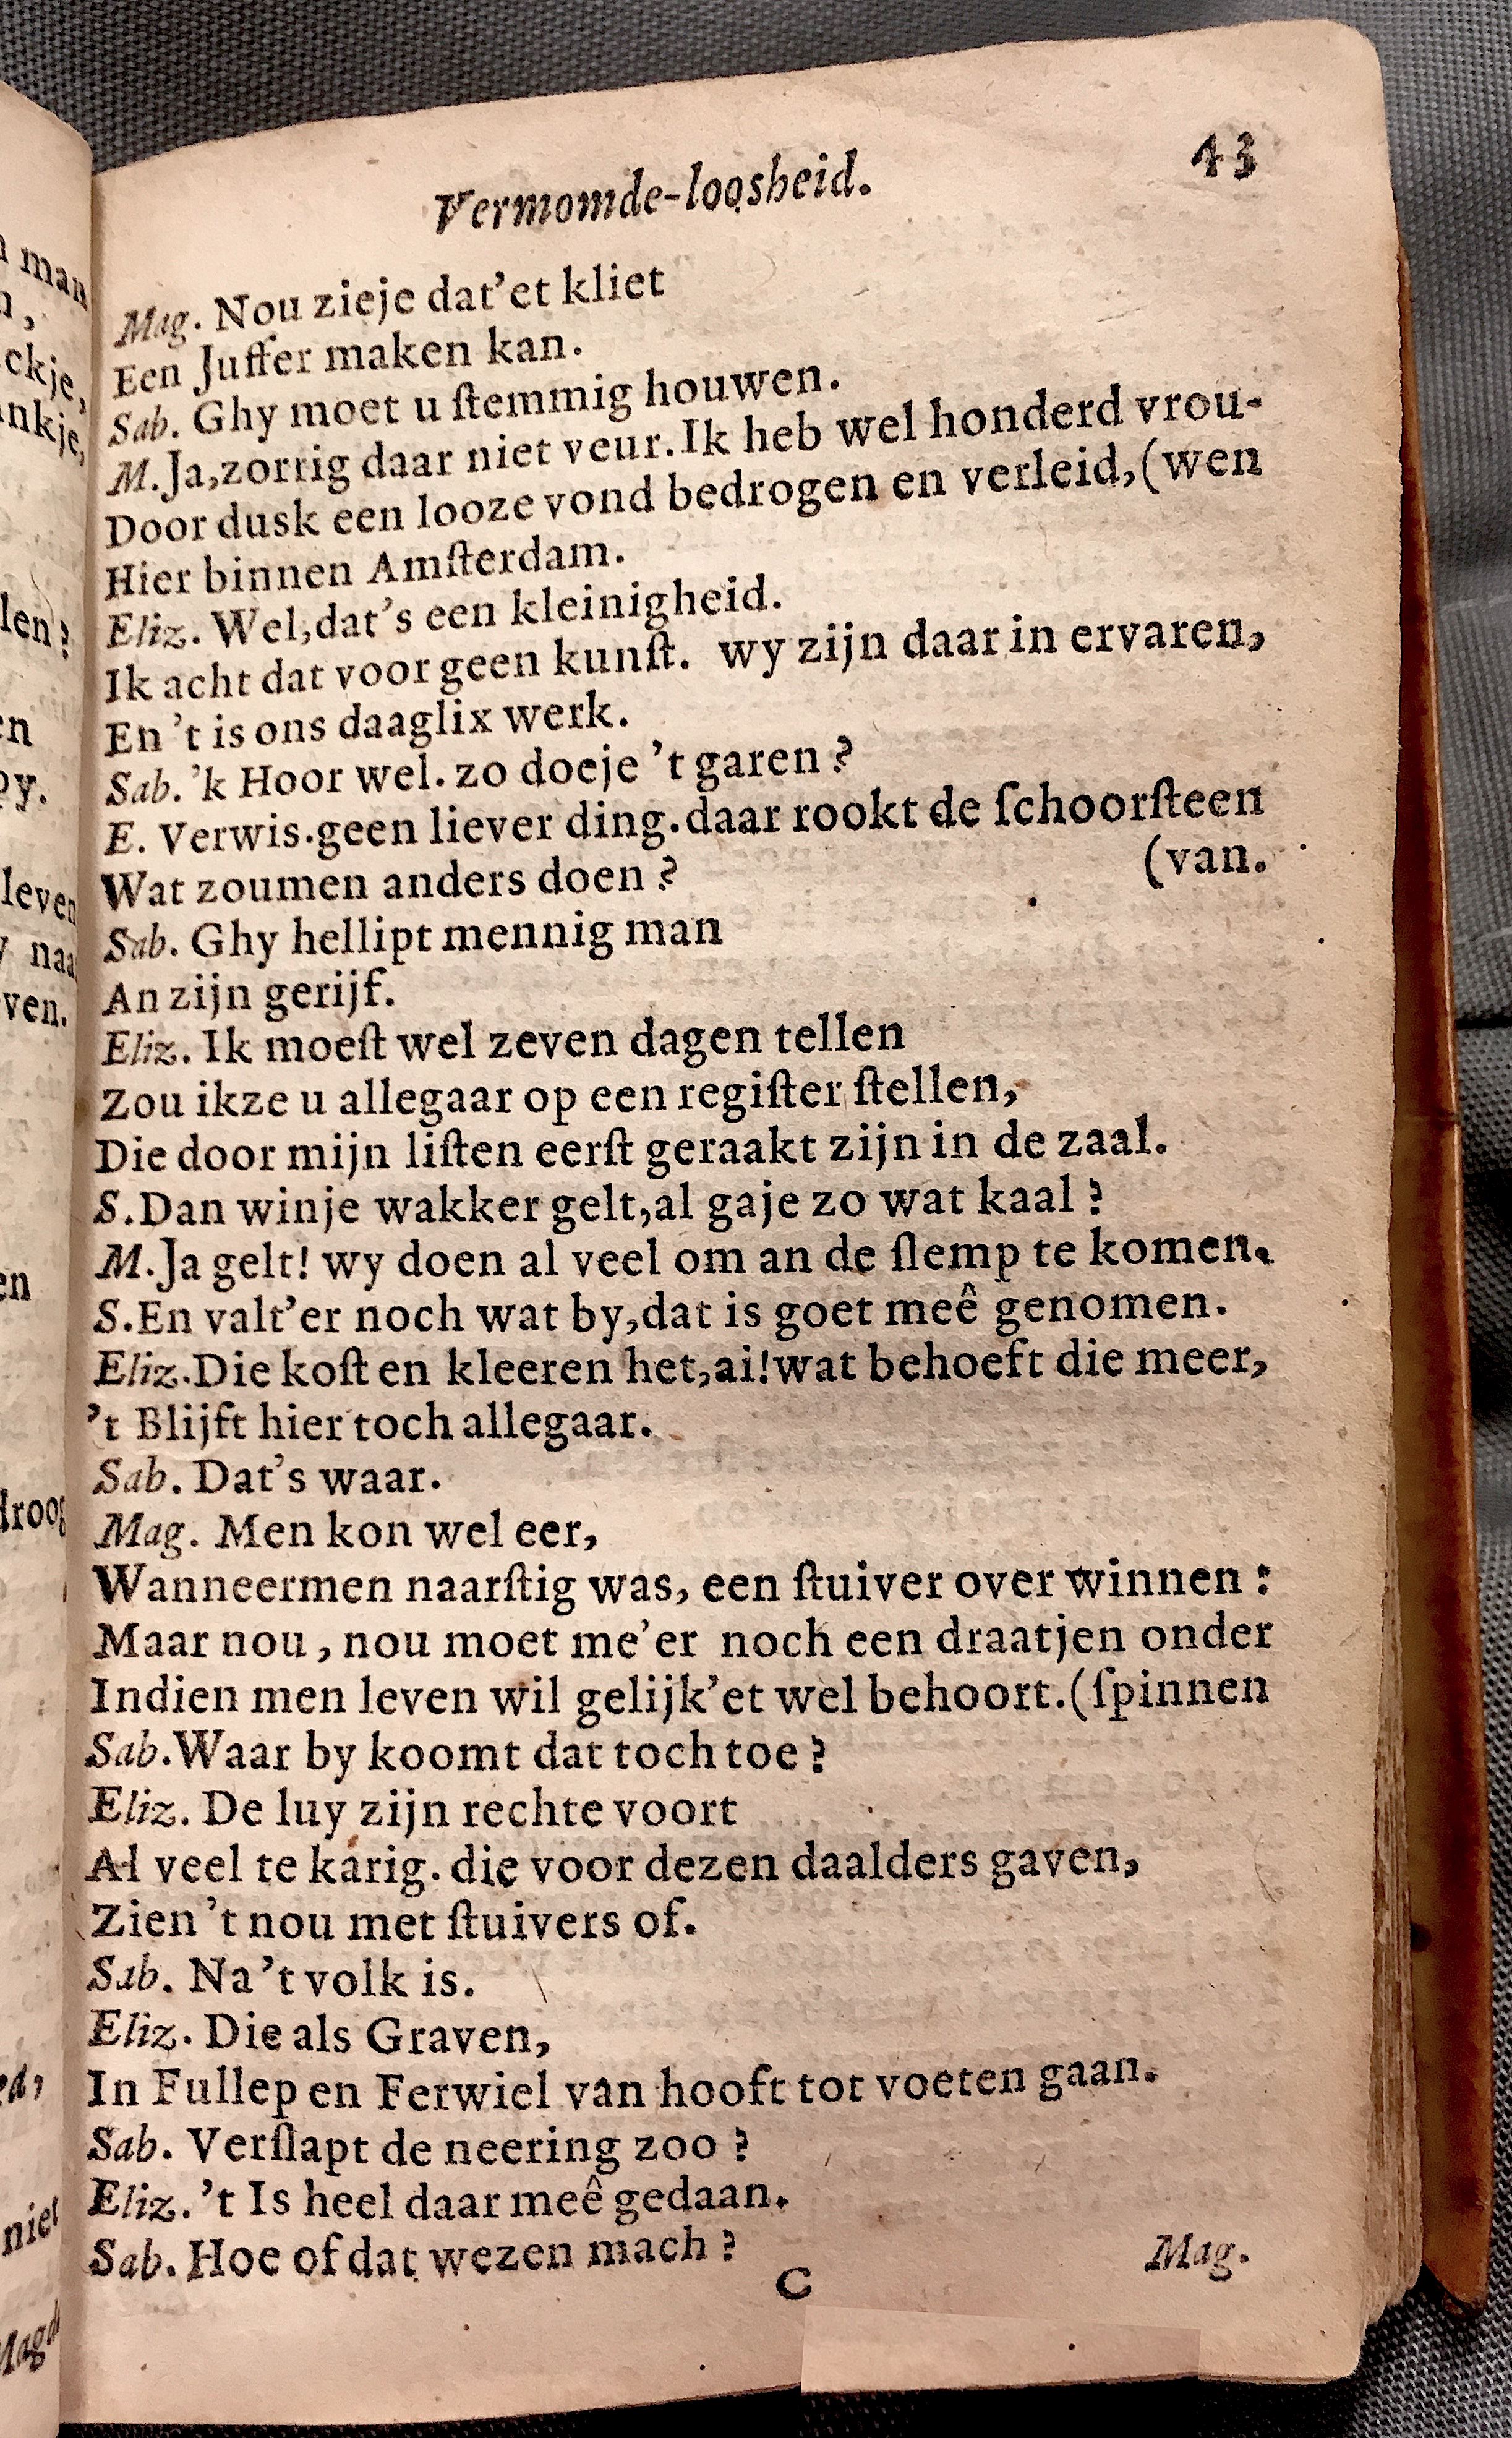 Vermomde-loosheid. 43
Mag. Nou zieje dat'et kliet
Een Juffer maken kan.
Sab. Ghy moet u ſtemmig houwen.
M. Ja, zorrig daar niet veur. Ik heb wel honderd vrou-
Door dusk een looze vond bedrogen en verleid, (wen
Hier binnen Amſterdam.
Eliz. Wel, dat's een kleinigheid.
Ik acht dat voor geen kunſt. wy zijn daar in ervaren,
En 't is ons daaglix werk.
Sab. 'k Hoor wel. zo doeje 't garen?
E. Verwis. geen liever ding. daar rookt de ſchoorſteen
Wat zoumen anders doen? (van.
Sab. Ghy hellipt mennig man
An zijn gerijf.
Eliz. Ik moeſt wel zeven dagen tellen
Zou ikze u allegaar op een regiſter ſtellen,
Die door mijn liſten eerſt geraakt zijn in de zaal.
S. Dan winje wakker gelt, al gaje zo wat kaal?
M. Ja gelt! wy doen al veel om an de ſlemp te komen.
S. En valt'er noch wat by, dat is goet meê genomen.
Eliz. Die koſt en kleeren het, ai! wat behoeft die meer,
't Blijft hier toch allegaar.
Sab. Dat's waar.
Mag. Men kon wel eer,
Wanneermen naarſtig was, een ſtuiver over winnen:
Maar nou, nou moet me'er noch een draatjen onder
Indien men leven wil gelijk'et wel behoort. (ſpinnen
Sab. Waar by koomt dat toch toe?
Eliz. De luy zijn rechte voort
Al veel te karig. die voor dezen daalders gaven,
Zien 't nou met ſtuivers of.
Sab. Na 't volk is.
Eliz. Die als Graven,
In Fullep en Ferwiel van hooft tot voeten gaan.
Sab. Verſlapt de neering zoo?
Eliz. 't Is heel daar meê gedaan.
Sab. Hoe of dat wezen mach?
C Mag.